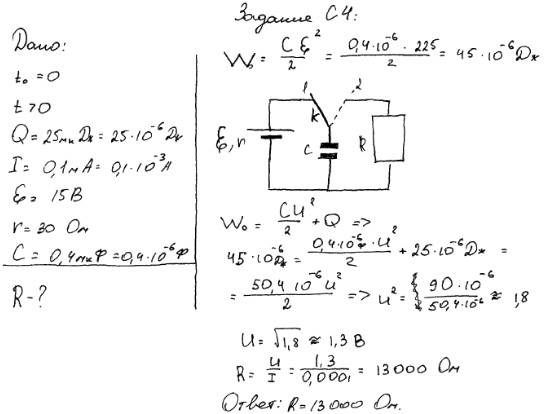 Задание С4:
Дано:
t₀ = 0
t > 0
Q = 25мк Дж = 25·10⁻⁶ Дж
I = 0,1мА = 0,1·10⁻³ А
ℰ = 15 В
r = 30 Ом
C = 0,4мкФ = 0,4·10⁻⁶ Ф
R - ?
W₀ = Cℰ²/2 = 0,4·10⁻⁶ · 225/2 = 45·10⁻⁶ Дж
1 2
K
ℰ, r C R
W₀ = CU²/2 + Q =>
45·10⁻⁶ Дж = 0,4·10⁻⁶ · U²/2 + 25·10⁻⁶ Дж =
= 50,4·10⁻⁶ U²/2 => U² = { 90·10⁻⁶/50,4·10⁻⁶ ≈ 1,8
U = √1,8 ≈ 1,3 В
R = U/I = 1,3/0,0001 = 13000 Ом
Ответ: R = 13000 Ом.